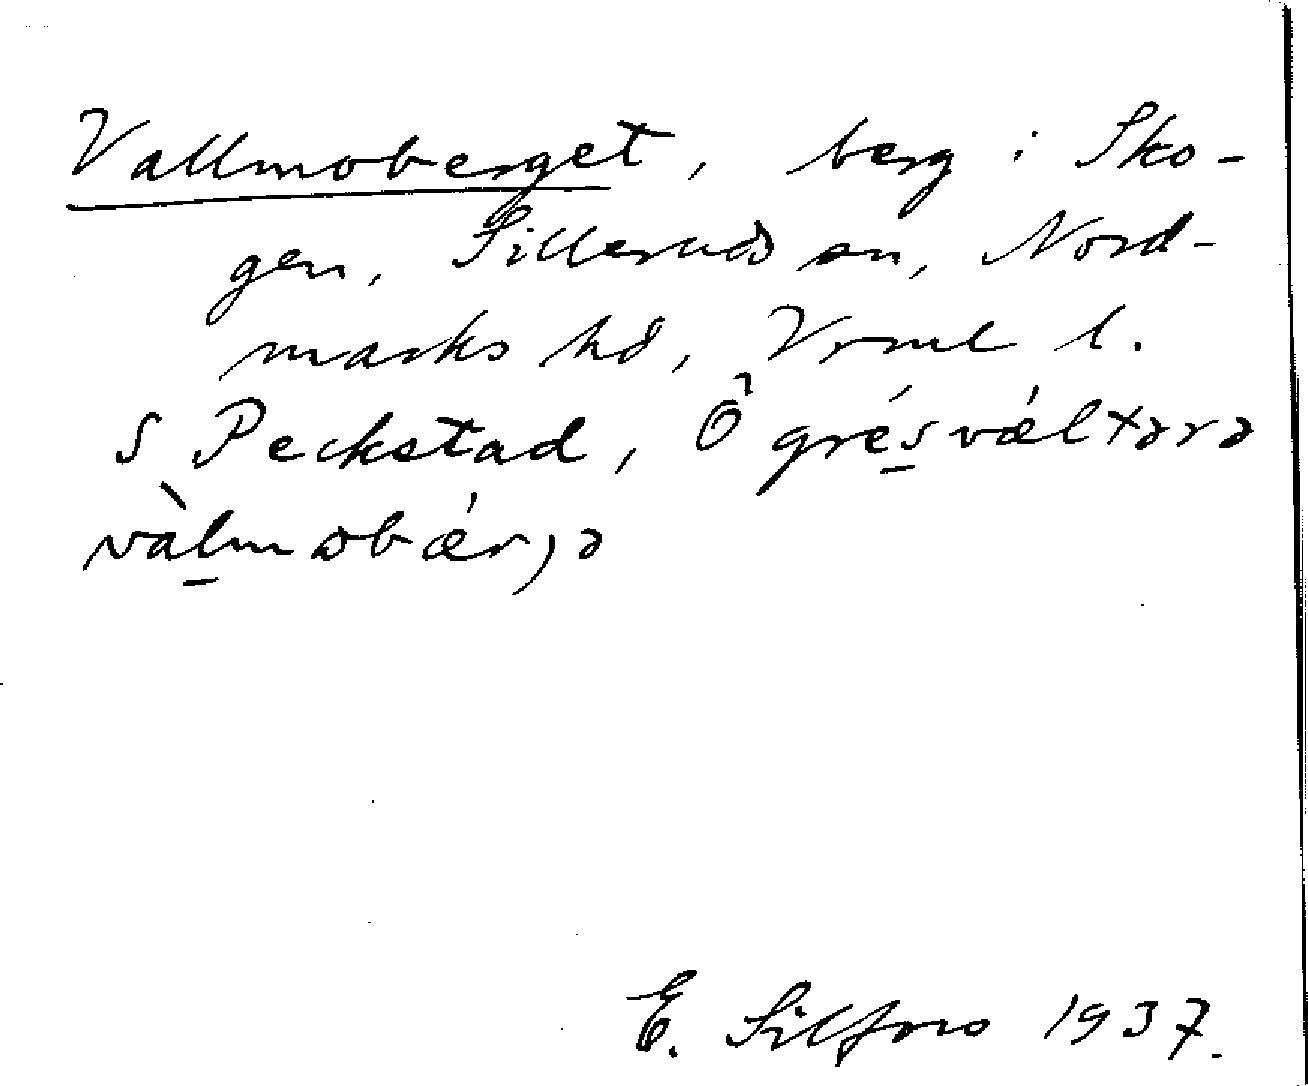 Vallmoberget, berg i Sko-
gen, Silleruds sn, Nord-
marks hd, Vrml l.
S Peckstad, Ö grésvæltərə
vàlmobærjə
E. Silfors 1937.